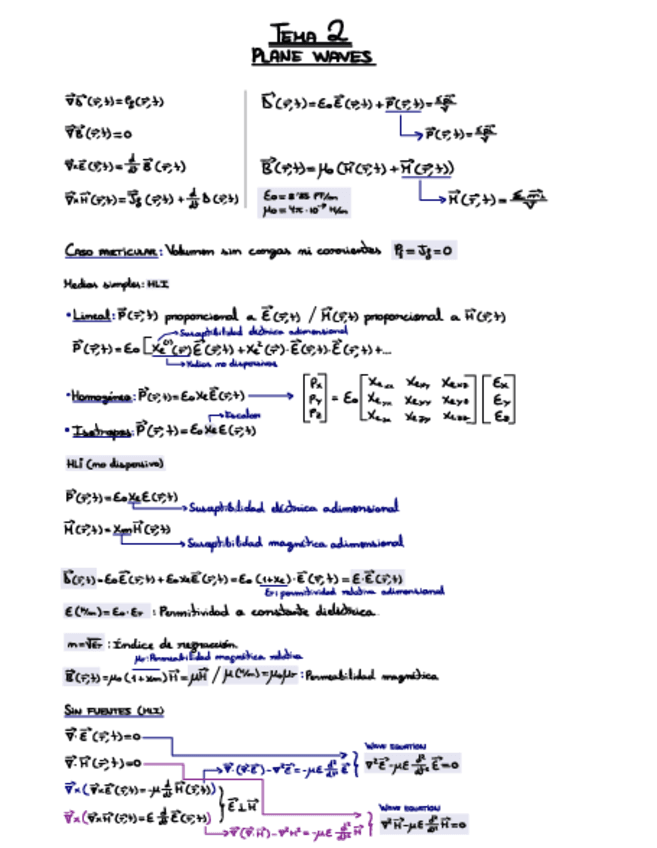 TEMA 2
PLANE WAVES
∇⃗D⃗(r⃗,t)=ρf(r⃗,t)
∇⃗B⃗(r⃗,t)=0
∇⃗×E⃗(r⃗,t)=d/dt B⃗(r⃗,t)
∇⃗×H⃗(r⃗,t)=J⃗f(r⃗,t)+d/dt D(r⃗,t)
D⃗(r⃗,t)=ε₀E⃗(r⃗,t)+P⃗(r⃗,t)=
P⃗(r⃗,t)=
B⃗(r⃗,t)=μ₀(H⃗(r⃗,t)+M⃗(r⃗,t))
M⃗(r⃗,t)=
ε₀=8'85 PF/m
μ₀=4π·10⁻⁷ H/m
CASO PARTICULAR: Volumen sin cargas ni corrientes ρf=Jf=0
Medios simples: HLI
•Lineal: P⃗(r⃗,t) proporcional a E⃗(r⃗,t) / M⃗(r⃗,t) proporcional a H⃗(r⃗,t)
Susceptibilidad eléctrica adimensional
P⃗(r⃗,t)=ε₀[χe⁽¹⁾(r⃗)E⃗(r⃗,t)+χe²(r⃗)·E⃗(r⃗,t)·E⃗(r⃗,t)+...
Medios no dispersivos
•Homogéneo: P⃗(r⃗,t)=ε₀χeE⃗(r⃗,t)
[Px Py Pz] = ε₀ [χexx χexy χexz χeyx χeyy χeyz χezx χezy χezz] [Ex Ey Ez]
Escalar
•Isótropos: P⃗(r⃗,t)=ε₀χeE(r⃗,t)
HLI (no dispersivo)
P⃗(r⃗,t)=ε₀χeE(r⃗,t)
Susceptibilidad eléctrica adimensional
M⃗(r⃗,t)=χmH⃗(r⃗,t)
Susceptibilidad magnética adimensional
D⃗(r⃗,t)=ε₀E⃗(r⃗,t)+ε₀χeE⃗(r⃗,t)=ε₀(1+χe)·E⃗(r⃗,t)=ε·E⃗(r⃗,t)
εr: permitividad relativa adimensional
ε(F/m)=ε₀·εr : Permitividad a constante dieléctrica
m=√εr : Índice de refracción
μr: Permeabilidad magnética relativa
B⃗(r⃗,t)=μ₀(1+χm)H⃗=μH⃗ / μ(H/m)=μ₀μr : Permeabilidad magnética
SIN FUENTES (HLI)
∇⃗·E⃗(r⃗,t)=0
∇⃗·H⃗(r⃗,t)=0
∇⃗×(∇⃗×E⃗(r⃗,t)=-μ d/dt H⃗(r⃗,t))
∇⃗×(∇⃗×H⃗(r⃗,t)=ε d/dt E⃗(r⃗,t))
E⃗⊥H⃗
∇⃗·(∇⃗·E⃗)-∇²E⃗=-με d²/dt² E⃗
WAVE EQUATION
∇²E⃗-με d²/dt² E⃗=0
∇⃗(∇⃗·H⃗)-∇²H⃗=-με d²/dt² H⃗
WAVE EQUATION
∇²H⃗-με d²/dt² H⃗=0